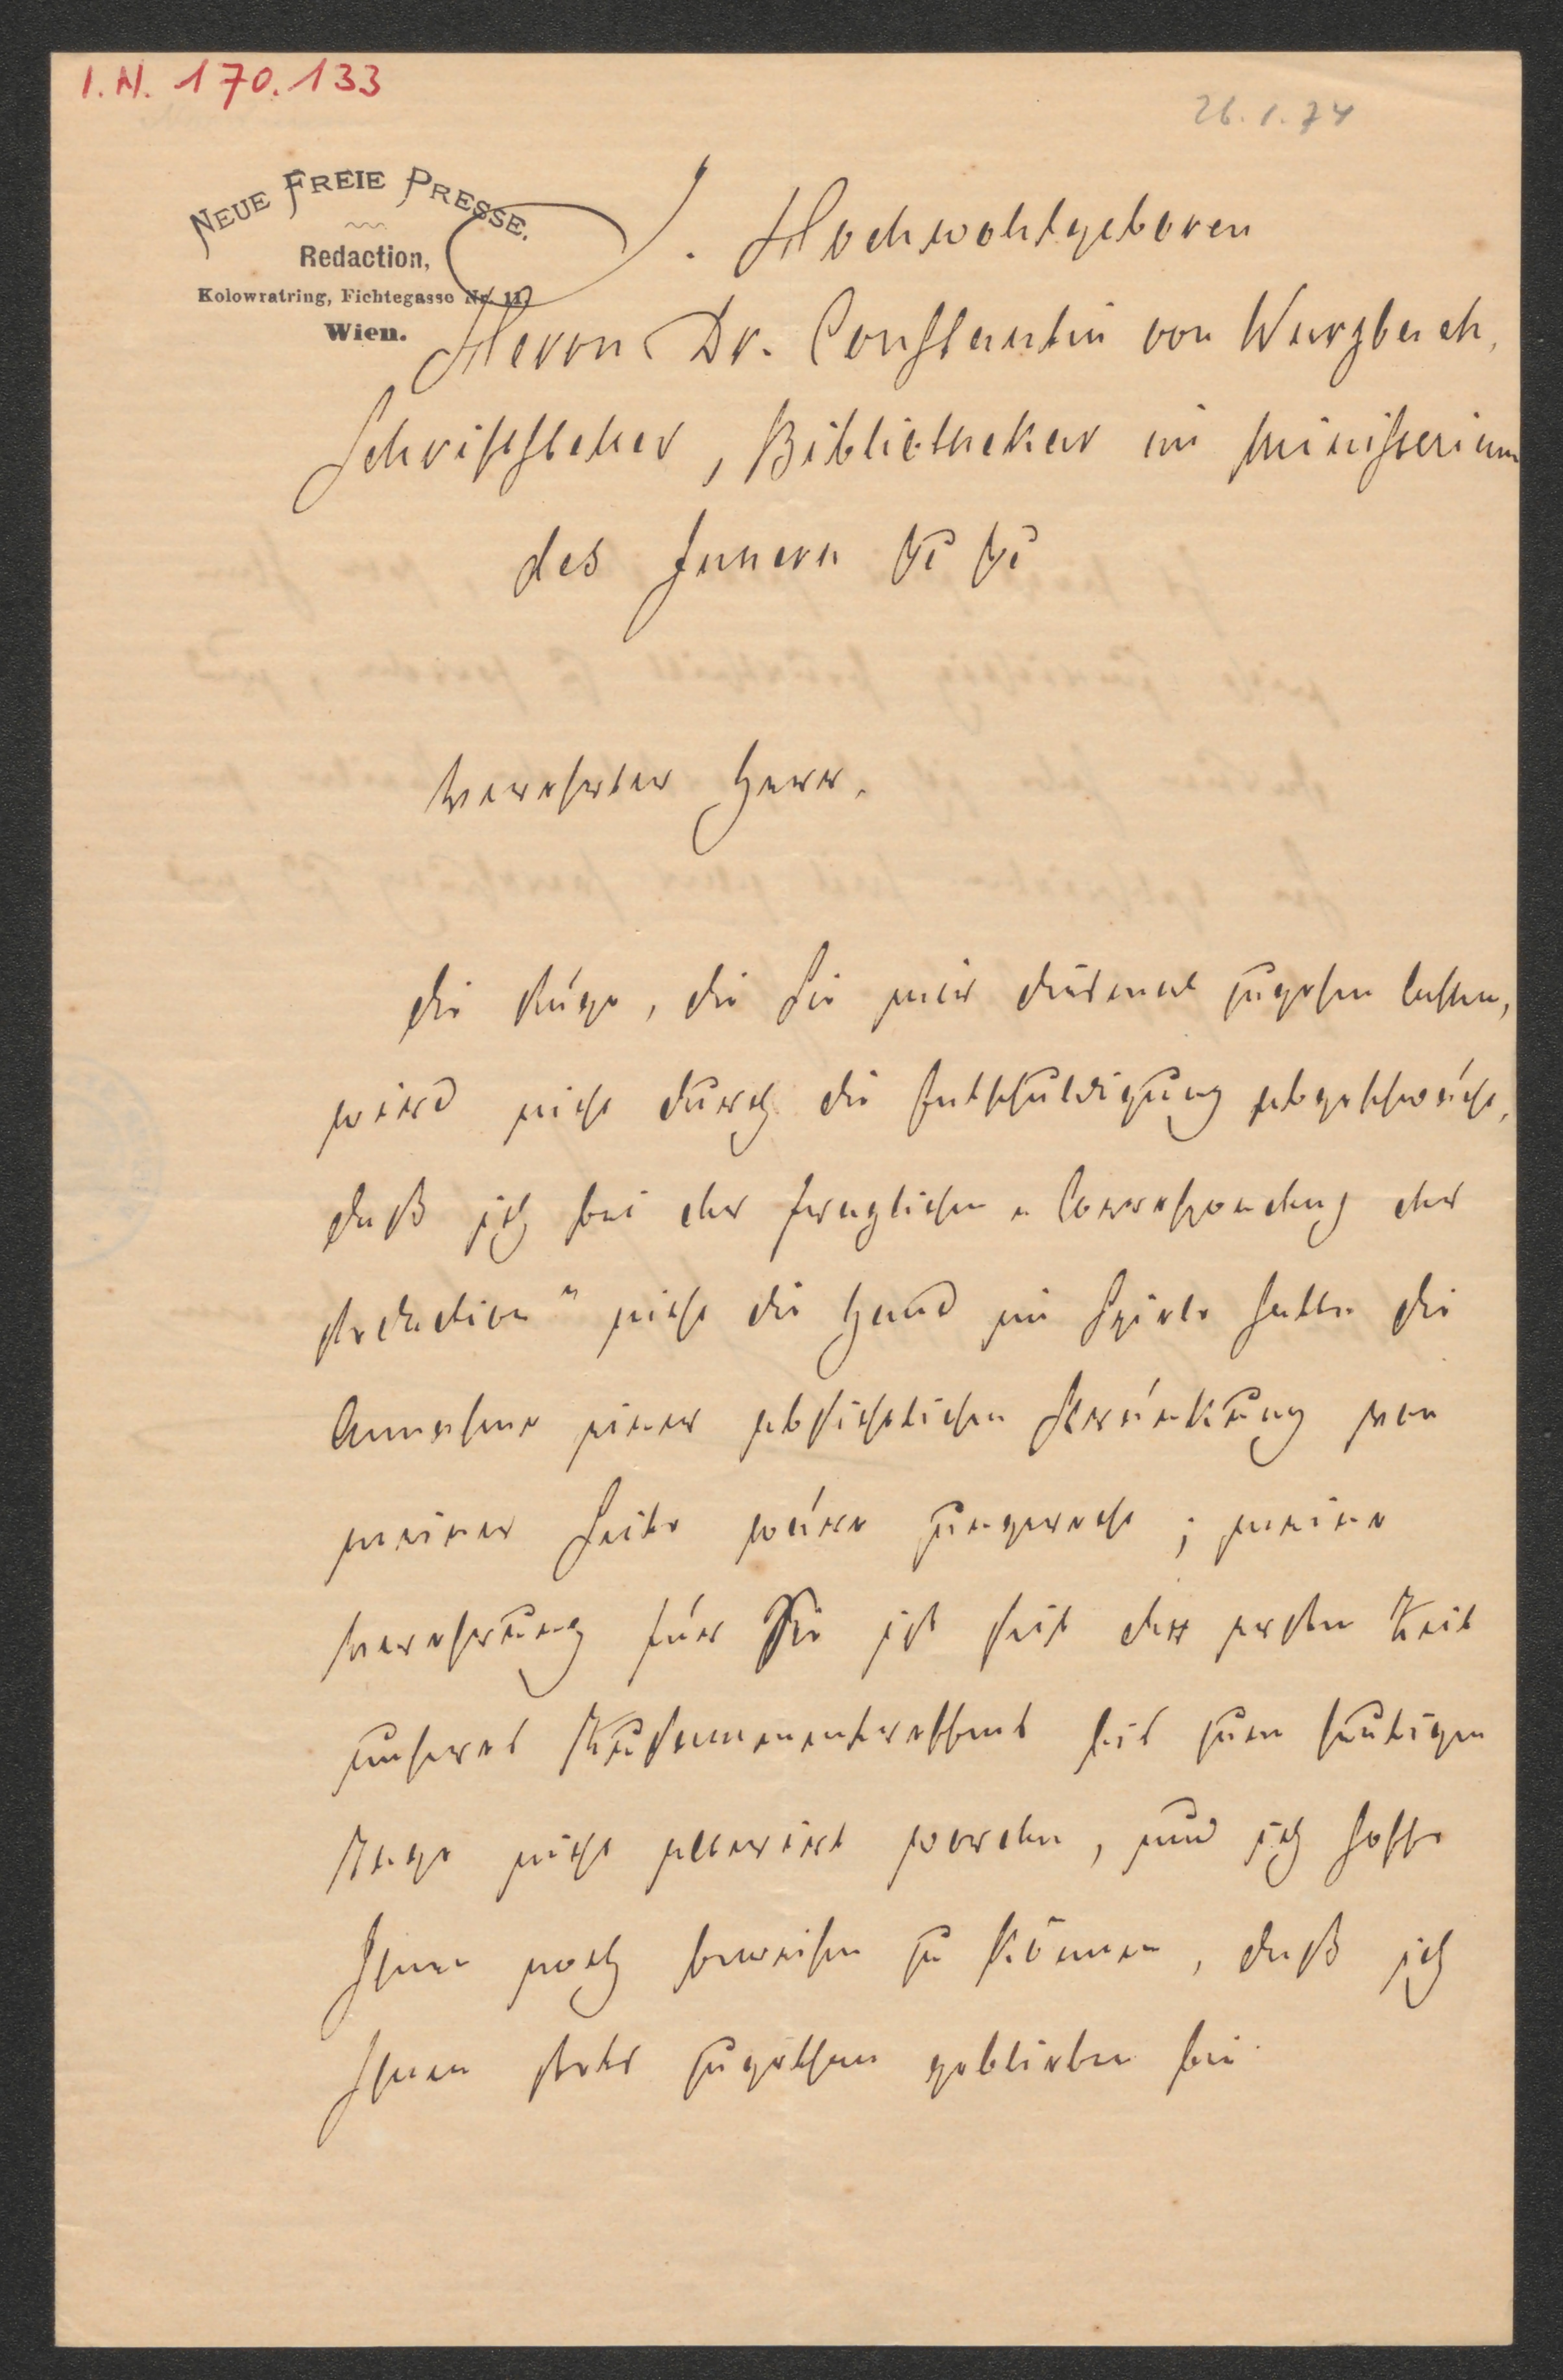 I.N. 170.133
26.1.74
NEUE FREIE PRESSE.
Redaction,
Kolowratring, Fichtegasse Nr. 11,
Wien.
S. Hochwohlgeboren
Herrn Dr. Constantin von Wurzbach,
Schriftsteller, Bibliothekar im Ministerium
des Innern
Verehrter Herr.
die Rüge, die Sie mir diesmal zugehen lassen,
wird nicht durch die Entschuldigung abgeschwächt,
daß ich bei der fraglichen „Correspondenz der
Redaction“ nicht die Hand im Spiele hatte die
Annahme einer absichtlichen Kränkung von
meiner Seite wäre ungerecht; meine
Verehrung für Sie ist seit der ersten Zeit
unseres Zusammentreffens bis zum heutigen
Tage nicht alterirt worden, und ich hoffe
Ihnen noch beweisen zu können, daß ich
Ihnen stets zugethan geblieben bin.